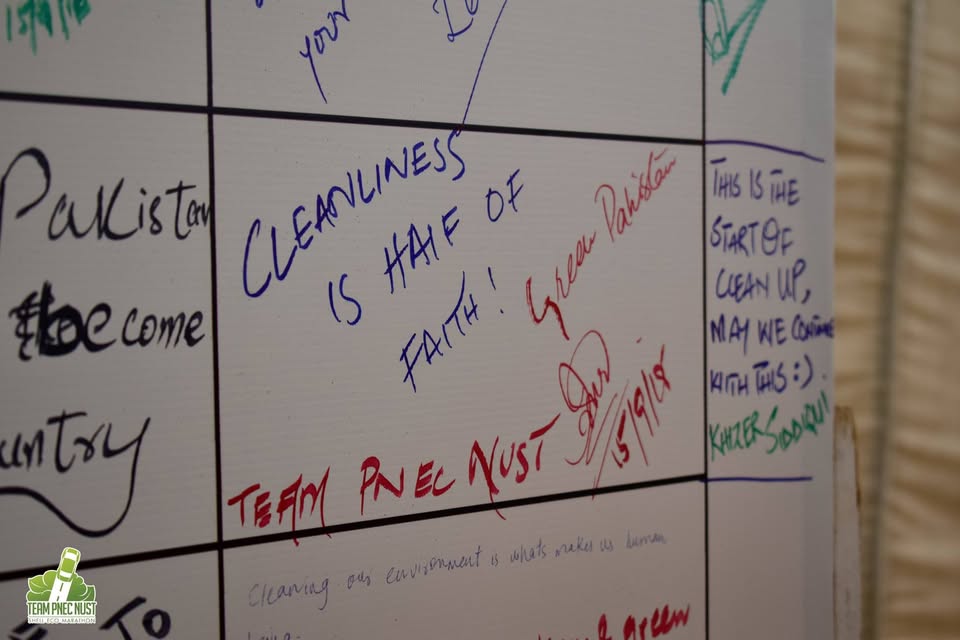 15/9/18
your
Pakistan
become
untry
CLEANLINESS
IS HALF OF
FAITH!
Green Pakistan
15/9/18
TEAM PNEC NUST
THIS IS THE
START OF
CLEAN UP,
MAY WE CONTINUE
WITH THIS :).
KHIZER SIDDIQUI
Cleaning our environment is whats makes us human
being.
& green
TO
TEAM PNEC NUST
SHELL ECO MARATHON